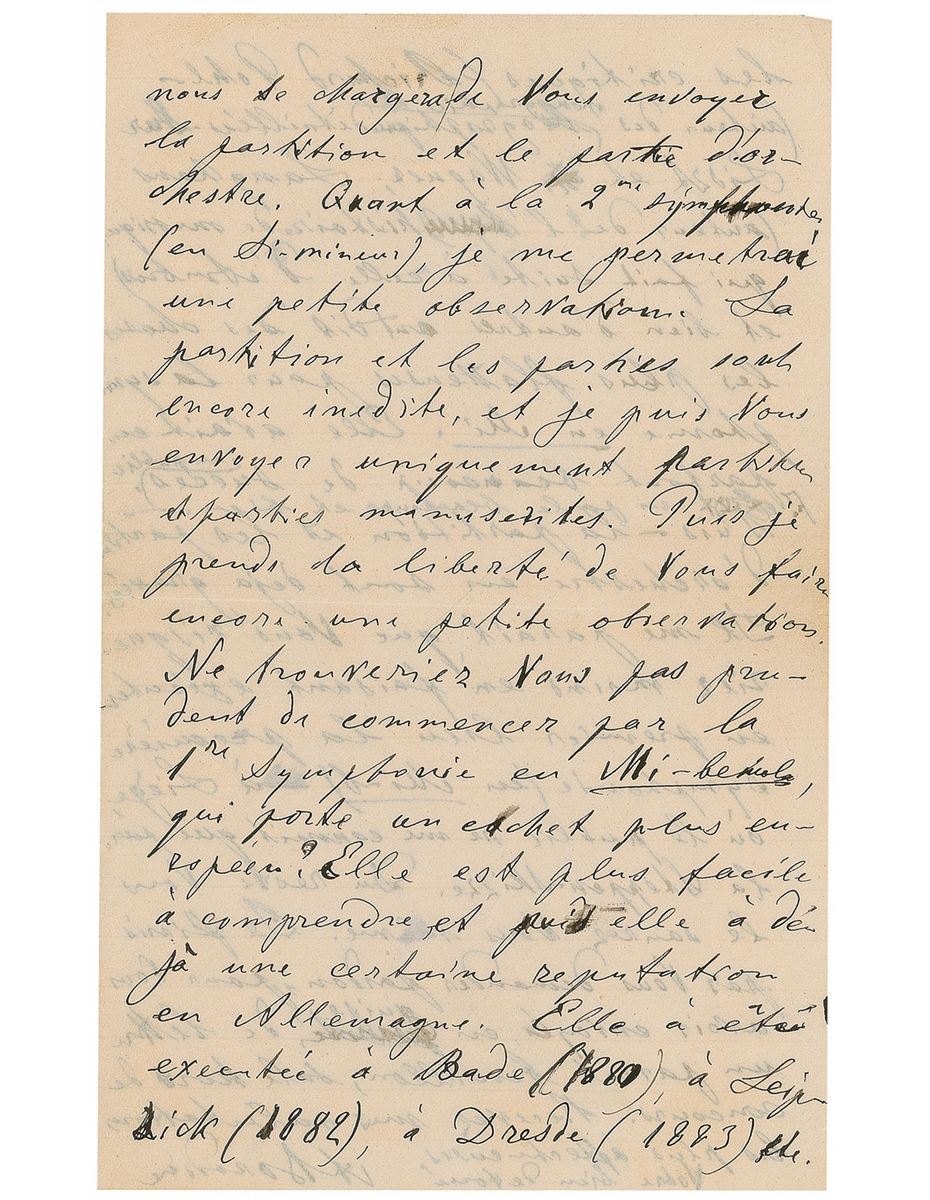 nous se chargera de Vous envoyer
la partition et le partie d'or-
chestre. Quant à la 2me symphonie
(en Si-mineur), je me permetrai
une petite observation. La
partition et les parties sont
encore inedite, et je puis Vous
envoyer uniquement partition
et parties manuscrites. Puis je
prends la liberté de Vous faire
encore une petite observation.
Ne trouveriez Vous pas pru-
dent de commencer par la
1re Symphonie en Mi-bemol,
qui porte un cachet plus eu-
ropéen? Elle est plus facile
à comprendre, et puis elle à dé-
jà une certaine reputation
en Allemagne. Elle à été
executée à Bade (1880), à Leip-
zick (1882), à Dresde (1883) etc.